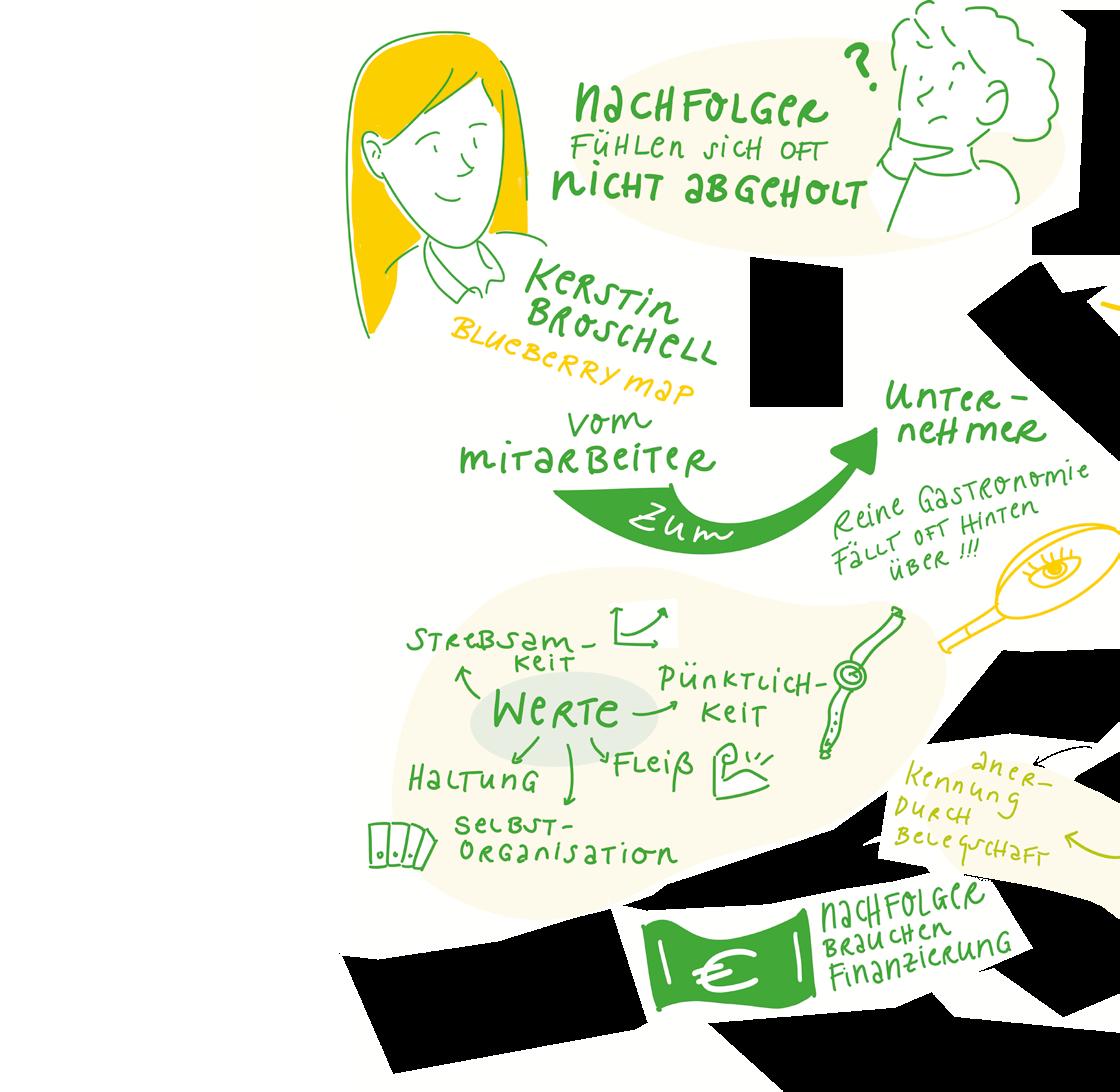 ?
NACHFOLGER
FÜHLEN SICH OFT
NICHT ABGEHOLT
KERSTIN
BROSCHELL
BLUEBERRY MAP
VOM
MITARBEITER
ZUM
UNTER-
NEHMER
REINE GASTRONOMIE
FÄLLT OFT HINTEN
ÜBER !!!
STREBSAM-
KEIT
WERTE
PÜNKTLICH-
KEIT
HALTUNG
FLEIß
SELBST-
ORGANISATION
ANER-
KENNUNG
DURCH
BELEGSCHAFT
€
NACHFOLGER
BRAUCHEN
FINANZIERUNG